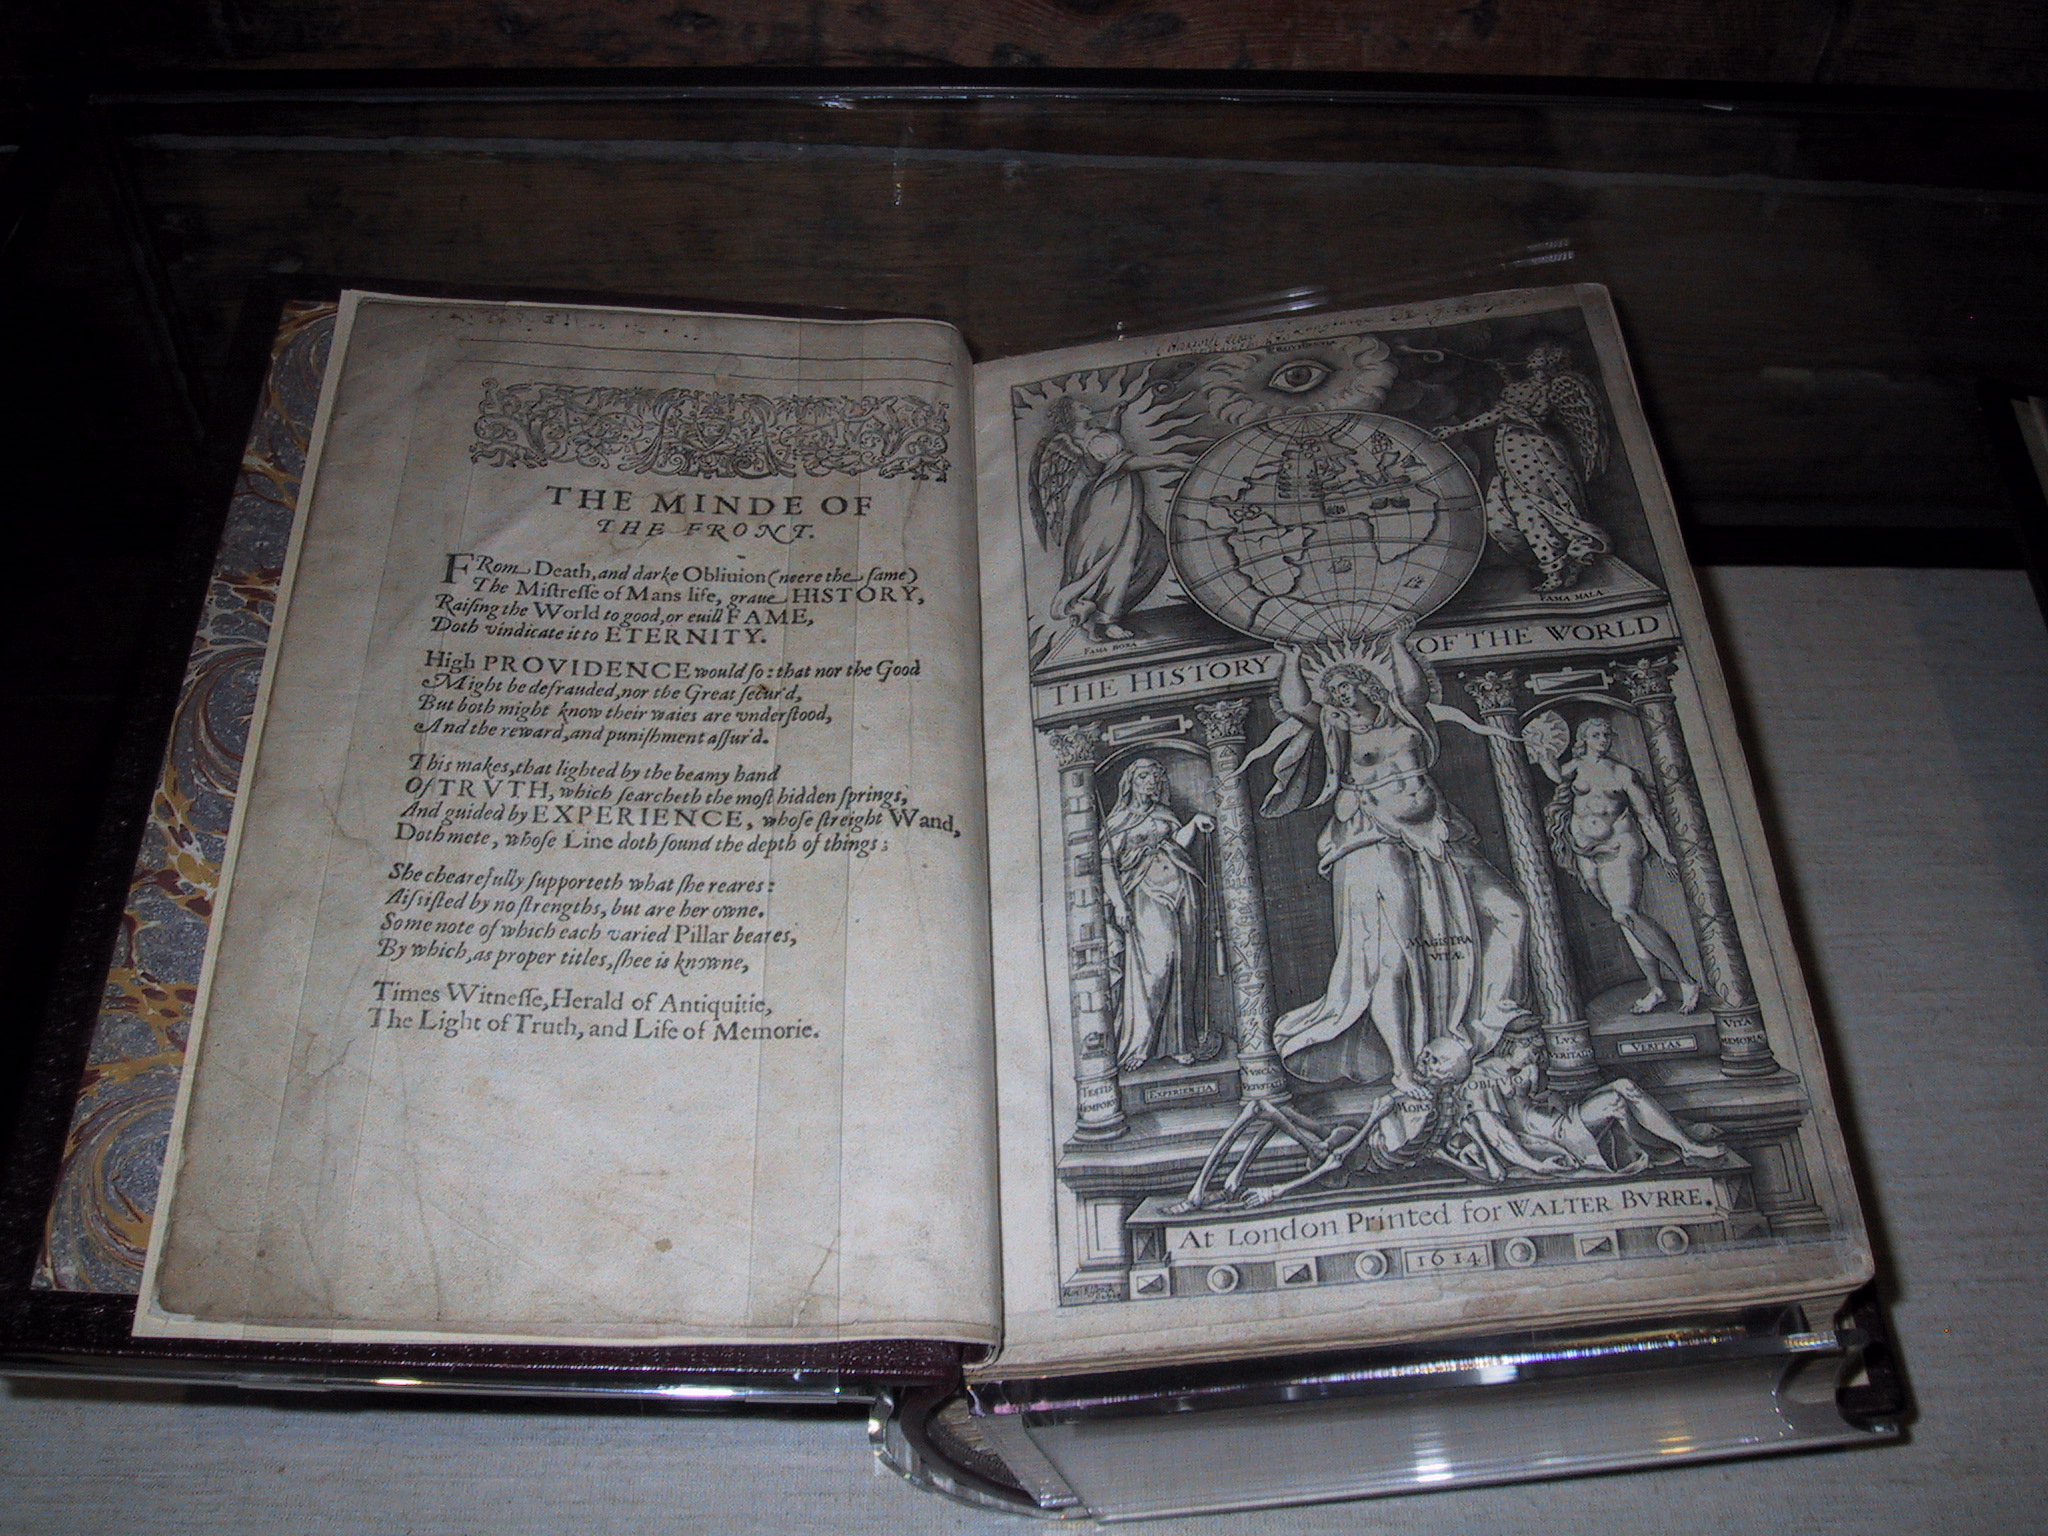 THE MINDE OF
THE FRONT.
FRom Death, and darke Obliuion (neere the ſame)
The Miſtreſſe of Mans life, graue HISTORY,
Raiſing the World to good, or euill FAME,
Doth vindicate it to ETERNITY.
High PROVIDENCE would ſo: that nor the Good
Might be defrauded, nor the Great ſecur'd,
But both might know their waies are vnderſtood,
And the reward, and puniſhment aſſur'd.
This makes, that lighted by the beamy hand
Of TRVTH, which ſearcheth the moſt hidden ſprings,
And guided by EXPERIENCE, whoſe ſtreight Wand,
Doth mete, whoſe Line doth ſound the depth of things;
She chearefully ſupporteth what ſhe reares:
Aiſsiſted by no ſtrengths, but are her owne.
Some note of which each varied Pillar beares,
By which, as proper titles, ſhee is knowne,
Times Witneſſe, Herald of Antiquitie,
The Light of Truth, and Life of Memorie.
FAMA BONA
FAMA MALA
THE HISTORY OF THE WORLD
MAGISTRA
VITÆ
TESTIS
TEMPORV
EXPERIENTIA
NVNCIA
VETVSTATIS
LVX
VERITATIS
VERITAS
VITA
MEMORIÆ
MORS
OBLIVIO
At London Printed for WALTER BVRRE.
1614